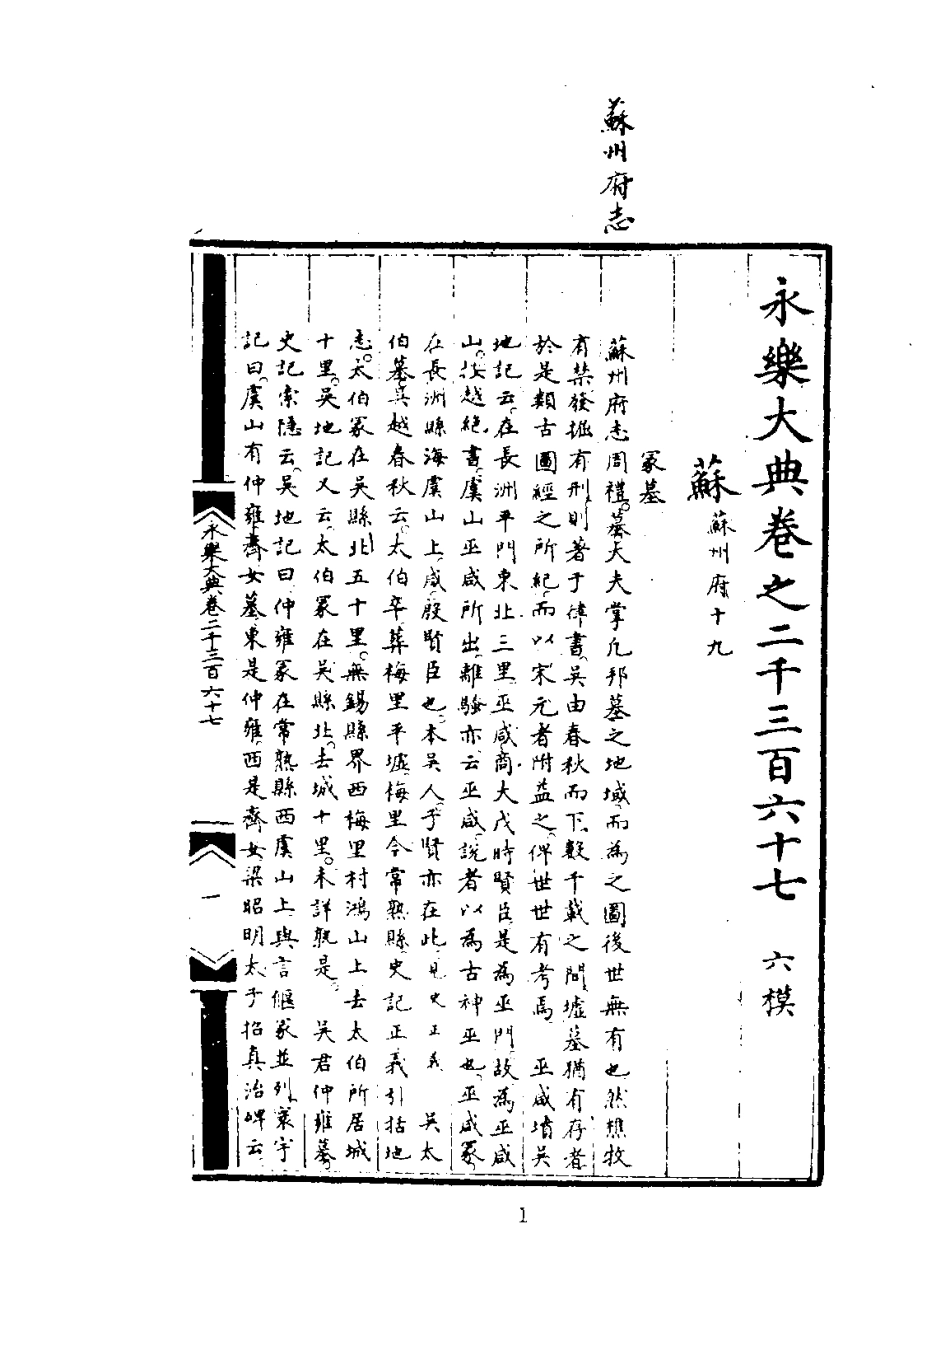 蘇州府志
永樂大典卷之二千三百六十七 六模
蘇 蘇州府十九
冢墓
蘇州府志周禮。墓大夫掌凡邦墓之地域。而為之圖後世無有也。然樵牧
有禁。發掘有刑。則著于律書。吳由春秋而下。數千載之間。墟墓猶有存者
於是類古圖經之所紀。而以宋元者附益之。俾世世有考焉 巫咸墳吳
地記云。在長洲平門東北三里。巫咸。商大戊時賢臣。是為巫門。故為巫咸
山。按越絕書。虞山巫咸所出。離騷亦云巫咸。說者以為古神巫也。巫咸冢
在長洲縣海虞山上。咸。殷賢臣也。本吳人。子賢亦在此。見史正義 吳太
伯墓。吳越春秋云。太伯卒葬梅里平墟。梅里今常熟縣。史記正義引括地
志。太伯冢在吳縣北五十里。無錫縣界西梅里村鴻山上。去太伯所居城
十里。吳地記又云。太伯冢在吳縣北。去城十里。未詳孰是。 吳君仲雍墓。
史記索隱云。吳地記曰。仲雍冢在常熟縣西虞山上。與言偃冢並列。寰宇
記曰。虞山有仲雍齊女墓。東是仲雍。西是齊女。梁昭明太子招真治碑云
永樂大典卷二千三百六十七
一
1